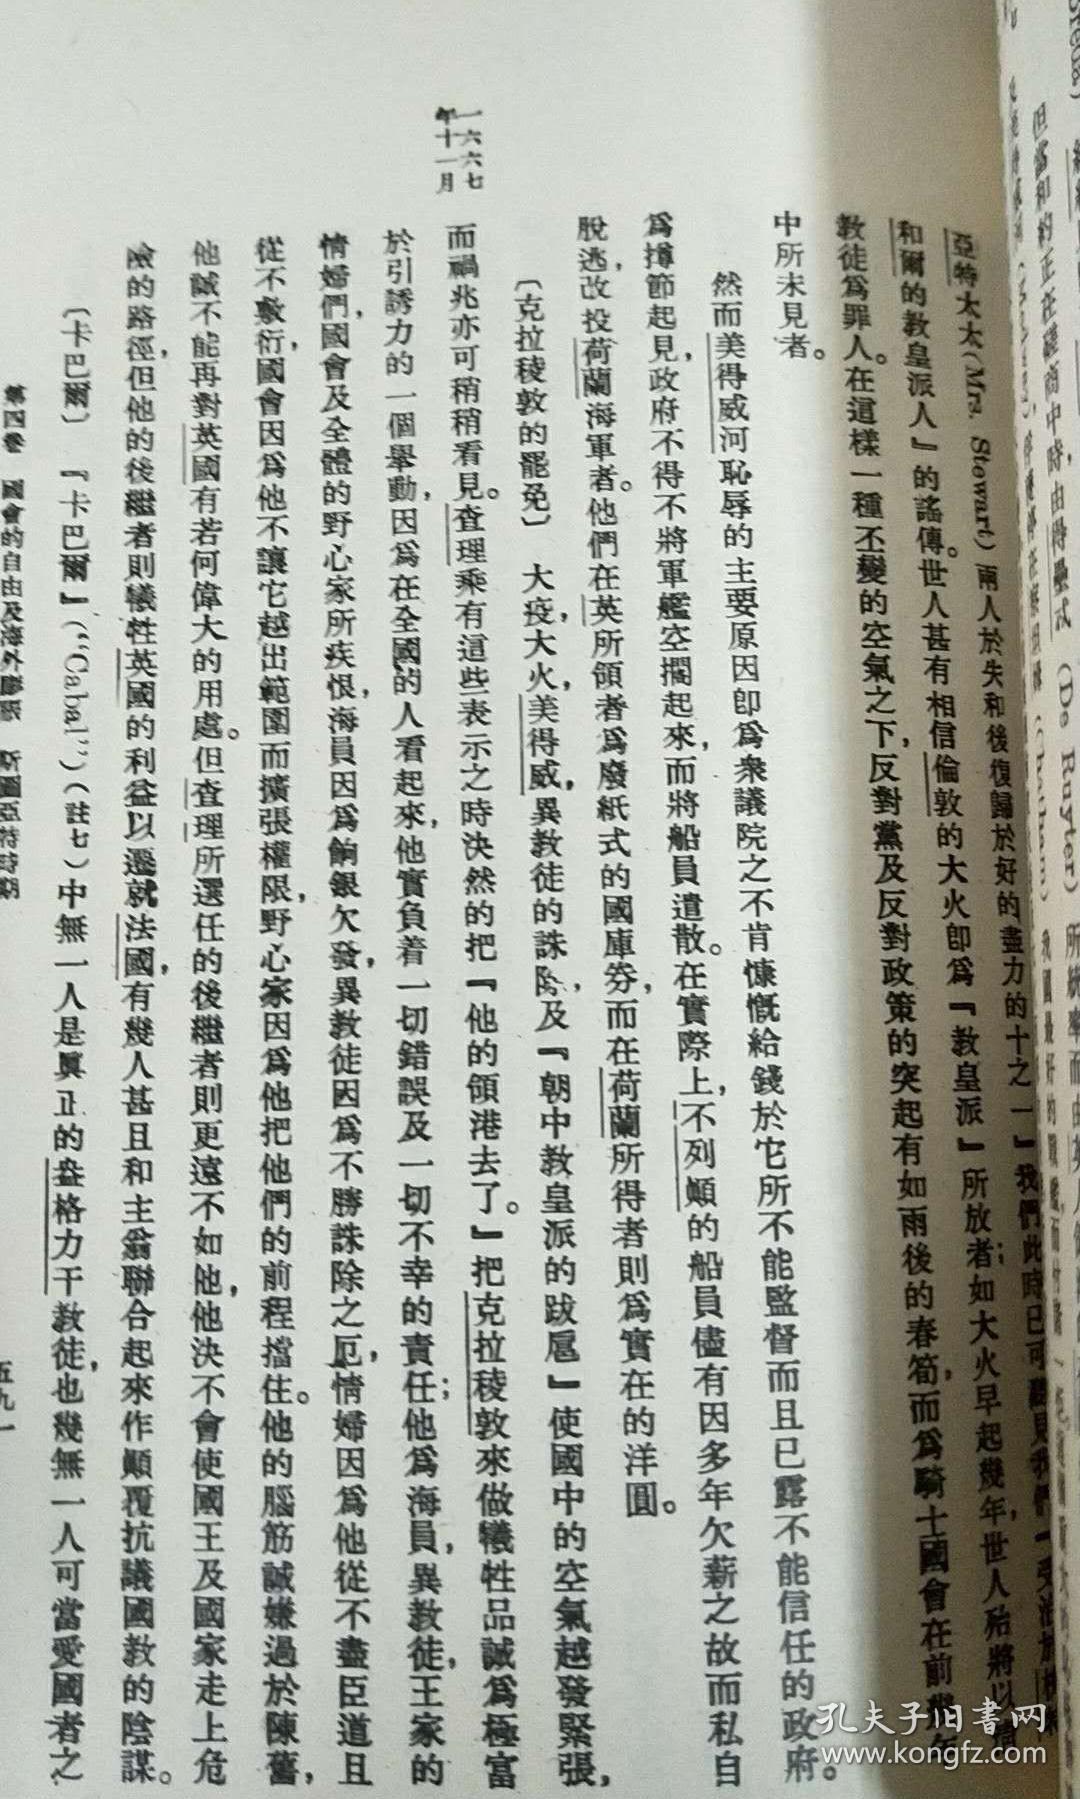 亞特太太(Mrs. Stewart)兩人於失和後復歸於好的盡力的十之一』我們此時已可
和爾的教皇派人』的謠傳。世人甚有相信倫敦的大火卽爲『教皇派』所放者；如大火早起幾年，世人殆將以
教徒爲罪人。在這樣一種丕變的空氣之下，反對黨及反對政策的突起有如雨後的春筍，而爲騎士國會在前幾年
中所未見者。
然而美得威河恥辱的主要原因卽爲衆議院之不肯慷慨給錢於它所不能監督而且已露不能信任的政府。
爲撙節起見，政府不得不將軍艦空擱起來，而將船員遣散。在實際上，不列顚的船員儘有因多年欠薪之故而私自
脫逃，改投荷蘭海軍者。他們在英所領者爲廢紙式的國庫劵，而在荷蘭所得者則爲實在的洋圓。
〔克拉稜敦的罷免〕　大疫，大火，美得威，異教徒的誅除，及『朝中教皇派的跋扈』使國中的空氣越發緊張，
一六六七
年十一月
而禍兆亦可稍稍看見。查理乘有這些表示之時決然的把『他的領港去了。』把克拉稜敦來做犧牲品誠爲極富
於引誘力的一個舉動，因爲在全國的人看起來，他實負着一切錯誤及一切不幸的責任；他爲海員，異教徒，王家的
情婦們，國會及全體的野心家所疾恨，海員因爲餉銀欠發，異教徒因爲不勝誅除之厄，情婦因爲他從不盡臣道且
從不敷衍，國會因爲他不讓它越出範圍而擴張權限，野心家因爲他把他們的前程擋住。他的腦筋誠嫌過於陳舊，
他誠不能再對英國有若何偉大的用處。但查理所選任的後繼者則更遠不如他，他決不會使國王及國家走上危
險的路徑，但他的後繼者則犧牲英國的利益以遷就法國，有幾人甚且和主翁聯合起來作顚覆抗議國教的陰謀。
〔卡巴爾〕　『卡巴爾』("Cabal")(註七)中無一人是眞正的盎格力干教徒，也幾無一人可當愛國者之
第四卷　國會的自由及海外膨脹　斯圖亞特時期
五九一
孔夫子旧書网
www.kongfz.com